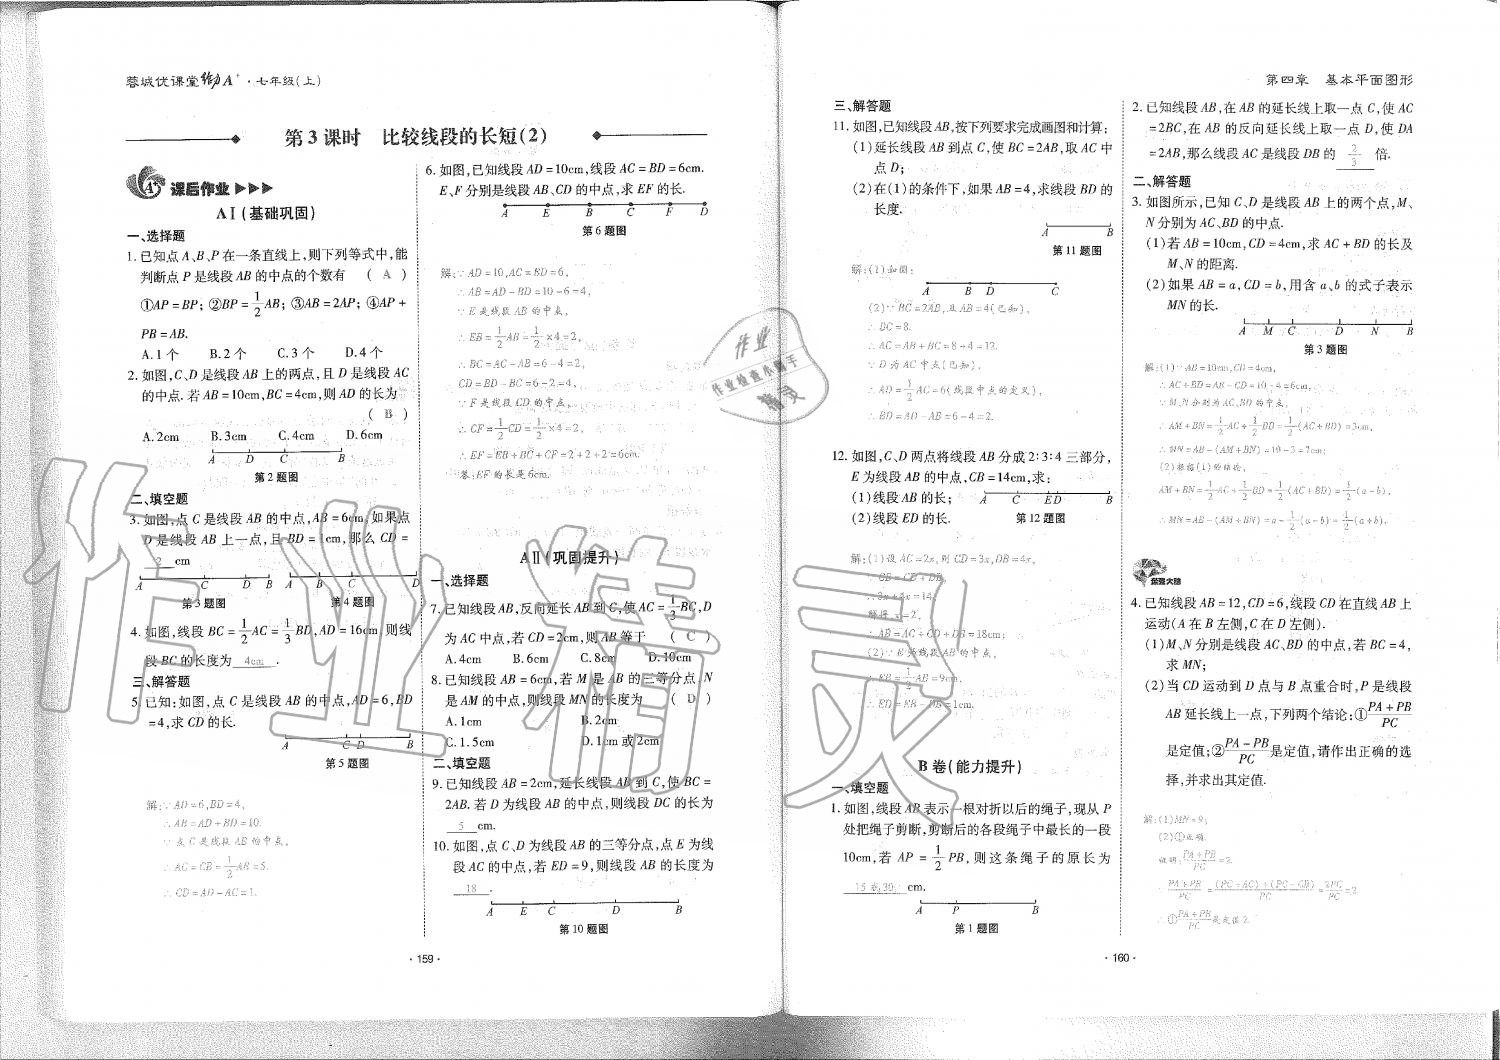 蓉城优课堂给力A+·七年级(上)
第3课时 比较线段的长短(2)
课后作业
AⅠ(基础巩固)
一、选择题
1.已知点A、B、P在一条直线上,则下列等式中,能
判断点P是线段AB的中点的个数有 ( A )
①AP=BP; ②BP=1/2AB; ③AB=2AP; ④AP+
PB=AB.
A.1个 B.2个 C.3个 D.4个
2.如图,C、D是线段AB上的两点,且D是线段AC
的中点.若AB=10cm,BC=4cm,则AD的长为
( B )
A.2cm B.3cm C.4cm D.6cm
A D C B
第2题图
二、填空题
3.如图,点C是线段AB的中点,AB=6cm,如果点
D是线段AB上一点,且BD=1cm,那么CD=
2 cm
A C D B A B C D
第3题图 第4题图
4.如图,线段BC=1/2AC=1/3BD,AD=16cm,则线
段BC的长度为 4cm .
三、解答题
5.已知:如图,点C是线段AB的中点,AD=6,BD
=4,求CD的长.
A C D B
第5题图
解:∵AD=6,BD=4,
∴AB=AD+BD=10.
∵点C是线段AB的中点,
∴AC=CB=1/2AB=5.
∴CD=AD-AC=1.
6.如图,已知线段AD=10cm,线段AC=BD=6cm.
E、F分别是线段AB、CD的中点,求EF的长.
A E B C F D
第6题图
解:∵AD=10,AC=BD=6,
∴AB=AD-BD=10-6=4,
∵E是线段AB的中点,
∴EB=1/2AB=1/2×4=2,
∴BC=AC-AB=6-4=2,
CD=BD-BC=6-2=4,
∵F是线段CD的中点,
∴CF=1/2CD=1/2×4=2,
∴EF=EB+BC+CF=2+2+2=6cm.
答:EF的长是6cm.
AⅡ(巩固提升)
一、选择题
7.已知线段AB,反向延长AB到C,使AC=1/3BC,D
为AC中点,若CD=2cm,则AB等于 ( C )
A.4cm B.6cm C.8cm D.10cm
8.已知线段AB=6cm,若M是AB的三等分点,N
是AM的中点,则线段MN的长度为 ( D )
A.1cm B.2cm
C.1.5cm D.1cm或2cm
二、填空题
9.已知线段AB=2cm,延长线段AB到C,使BC=
2AB.若D为线段AB的中点,则线段DC的长为
5 cm.
10.如图,点C、D为线段AB的三等分点,点E为线
段AC的中点,若ED=9,则线段AB的长度为
18 .
A E C D B
第10题图
·159·
第四章 基本平面图形
三、解答题
11.如图,已知线段AB,按下列要求完成画图和计算:
(1)延长线段AB到点C,使BC=2AB,取AC中
点D;
(2)在(1)的条件下,如果AB=4,求线段BD的
长度.
A B
第11题图
解:(1)如图:
A B D C
(2)∵BC=2AB,且AB=4(已知),
∴BC=8.
∴AC=AB+BC=8+4=12.
∵D为AC中点(已知),
∴AD=1/2AC=6(线段中点的定义),
∴BD=AD-AB=6-4=2.
12.如图,C、D两点将线段AB分成2:3:4三部分,
E为线段AB的中点,CB=14cm,求:
(1)线段AB的长;
(2)线段ED的长.
A C E D B
第12题图
解:(1)设AC=2x,则CD=3x,DB=4x,
∴CB=CD+DB,
∴3x+4x=14,
解得x=2,
∴AB=AC+CD+DB=18cm;
(2)∵E为线段AB的中点,
∴EB=1/2AB=9cm,
∴ED=EB-DB=1cm.
B卷(能力提升)
一、填空题
1.如图,线段AB表示一根对折以后的绳子,现从P
处把绳子剪断,剪断后的各段绳子中最长的一段
10cm,若AP=1/2PB,则这条绳子的原长为
15或30 cm.
A P B
第1题图
2.已知线段AB,在AB的延长线上取一点C,使AC
=2BC,在AB的反向延长线上取一点D,使DA
=2AB,那么线段AC是线段DB的 2/3 倍.
二、解答题
3.如图所示,已知C、D是线段AB上的两个点,M、
N分别为AC、BD的中点.
(1)若AB=10cm,CD=4cm,求AC+BD的长及
M、N的距离.
(2)如果AB=a,CD=b,用含a、b的式子表示
MN的长.
A M C D N B
第3题图
解:(1)∵AB=10cm,CD=4cm,
∴AC+BD=AB-CD=10-4=6cm,
∵M、N分别为AC、BD的中点,
∴AM+BN=1/2AC+1/2BD=1/2(AC+BD)=3cm,
∴MN=AB-(AM+BN)=10-3=7cm;
(2)根据(1)的结论,
AM+BN=1/2AC+1/2BD=1/2(AC+BD)=1/2(a-b),
∴MN=AB-(AM+BN)=a-1/2(a-b)=1/2(a+b).
最强大脑
4.已知线段AB=12,CD=6,线段CD在直线AB上
运动(A在B左侧,C在D左侧).
(1)M、N分别是线段AC、BD的中点,若BC=4,
求MN;
(2)当CD运动到D点与B点重合时,P是线段
AB延长线上一点,下列两个结论:①(PA+PB)/PC
是定值;②(PA-PB)/PC是定值,请作出正确的选
择,并求出其定值.
解:(1)MN=9;
(2)①正确.
证明:(PA+PB)/PC=2.
∴(PA+PB)/PC=((PC+AC)+(PC-CB))/PC=2PC/PC=2
∴①(PA+PB)/PC是定值2.
·160·
作业
作业检查小帮手
精灵
作业精灵